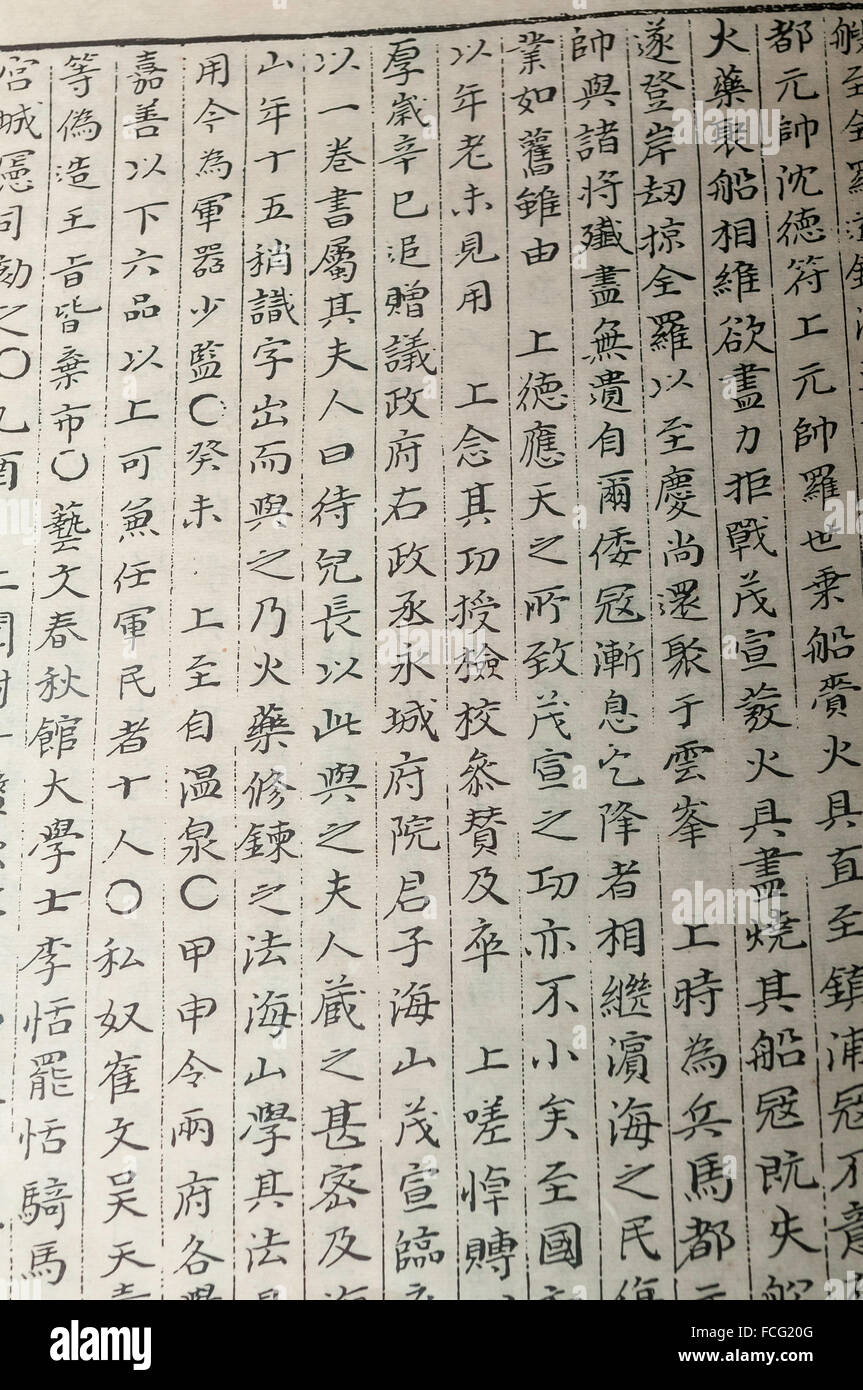 船至全羅道鎮浦
都元帥沈德符上元帥羅世乗船賫火具直至鎮浦冦不意
火藥聚船相維欲盡力拒戰茂宣𤼵火具盡燒其船冦既失船
遂登岸刼掠全羅以至慶尚還聚于雲峯 上時為兵馬都元
帥與諸將殲盡無遺自爾倭冦漸息乞降者相繼濱海之民復
業如舊雖由 上德應天之所致茂宣之功亦不小矣至國
以年老未見用 上念其功授檢校叅賛及卒 上嗟悼賻
厚歳辛巳追贈議政府右政丞永城府院君子海山茂宣臨
以一巻書屬其夫人曰待兒長以此與之夫人蔵之甚宻及海
山年十五稍識字出而與之乃火藥修鍊之法海山學其法
用今為軍器少監〇癸未 上至自温泉〇甲申令兩府各舉
嘉善以下六品以上可兼任軍民者十人〇私奴崔文吴天
等偽造王旨皆棄市〇藝文春秋館大學士李恬罷恬騎馬
宮城憲司劾之〇乙酉 上
alamy
alamy
Image ID: FCG20G
www.alamy.com
FCG20G